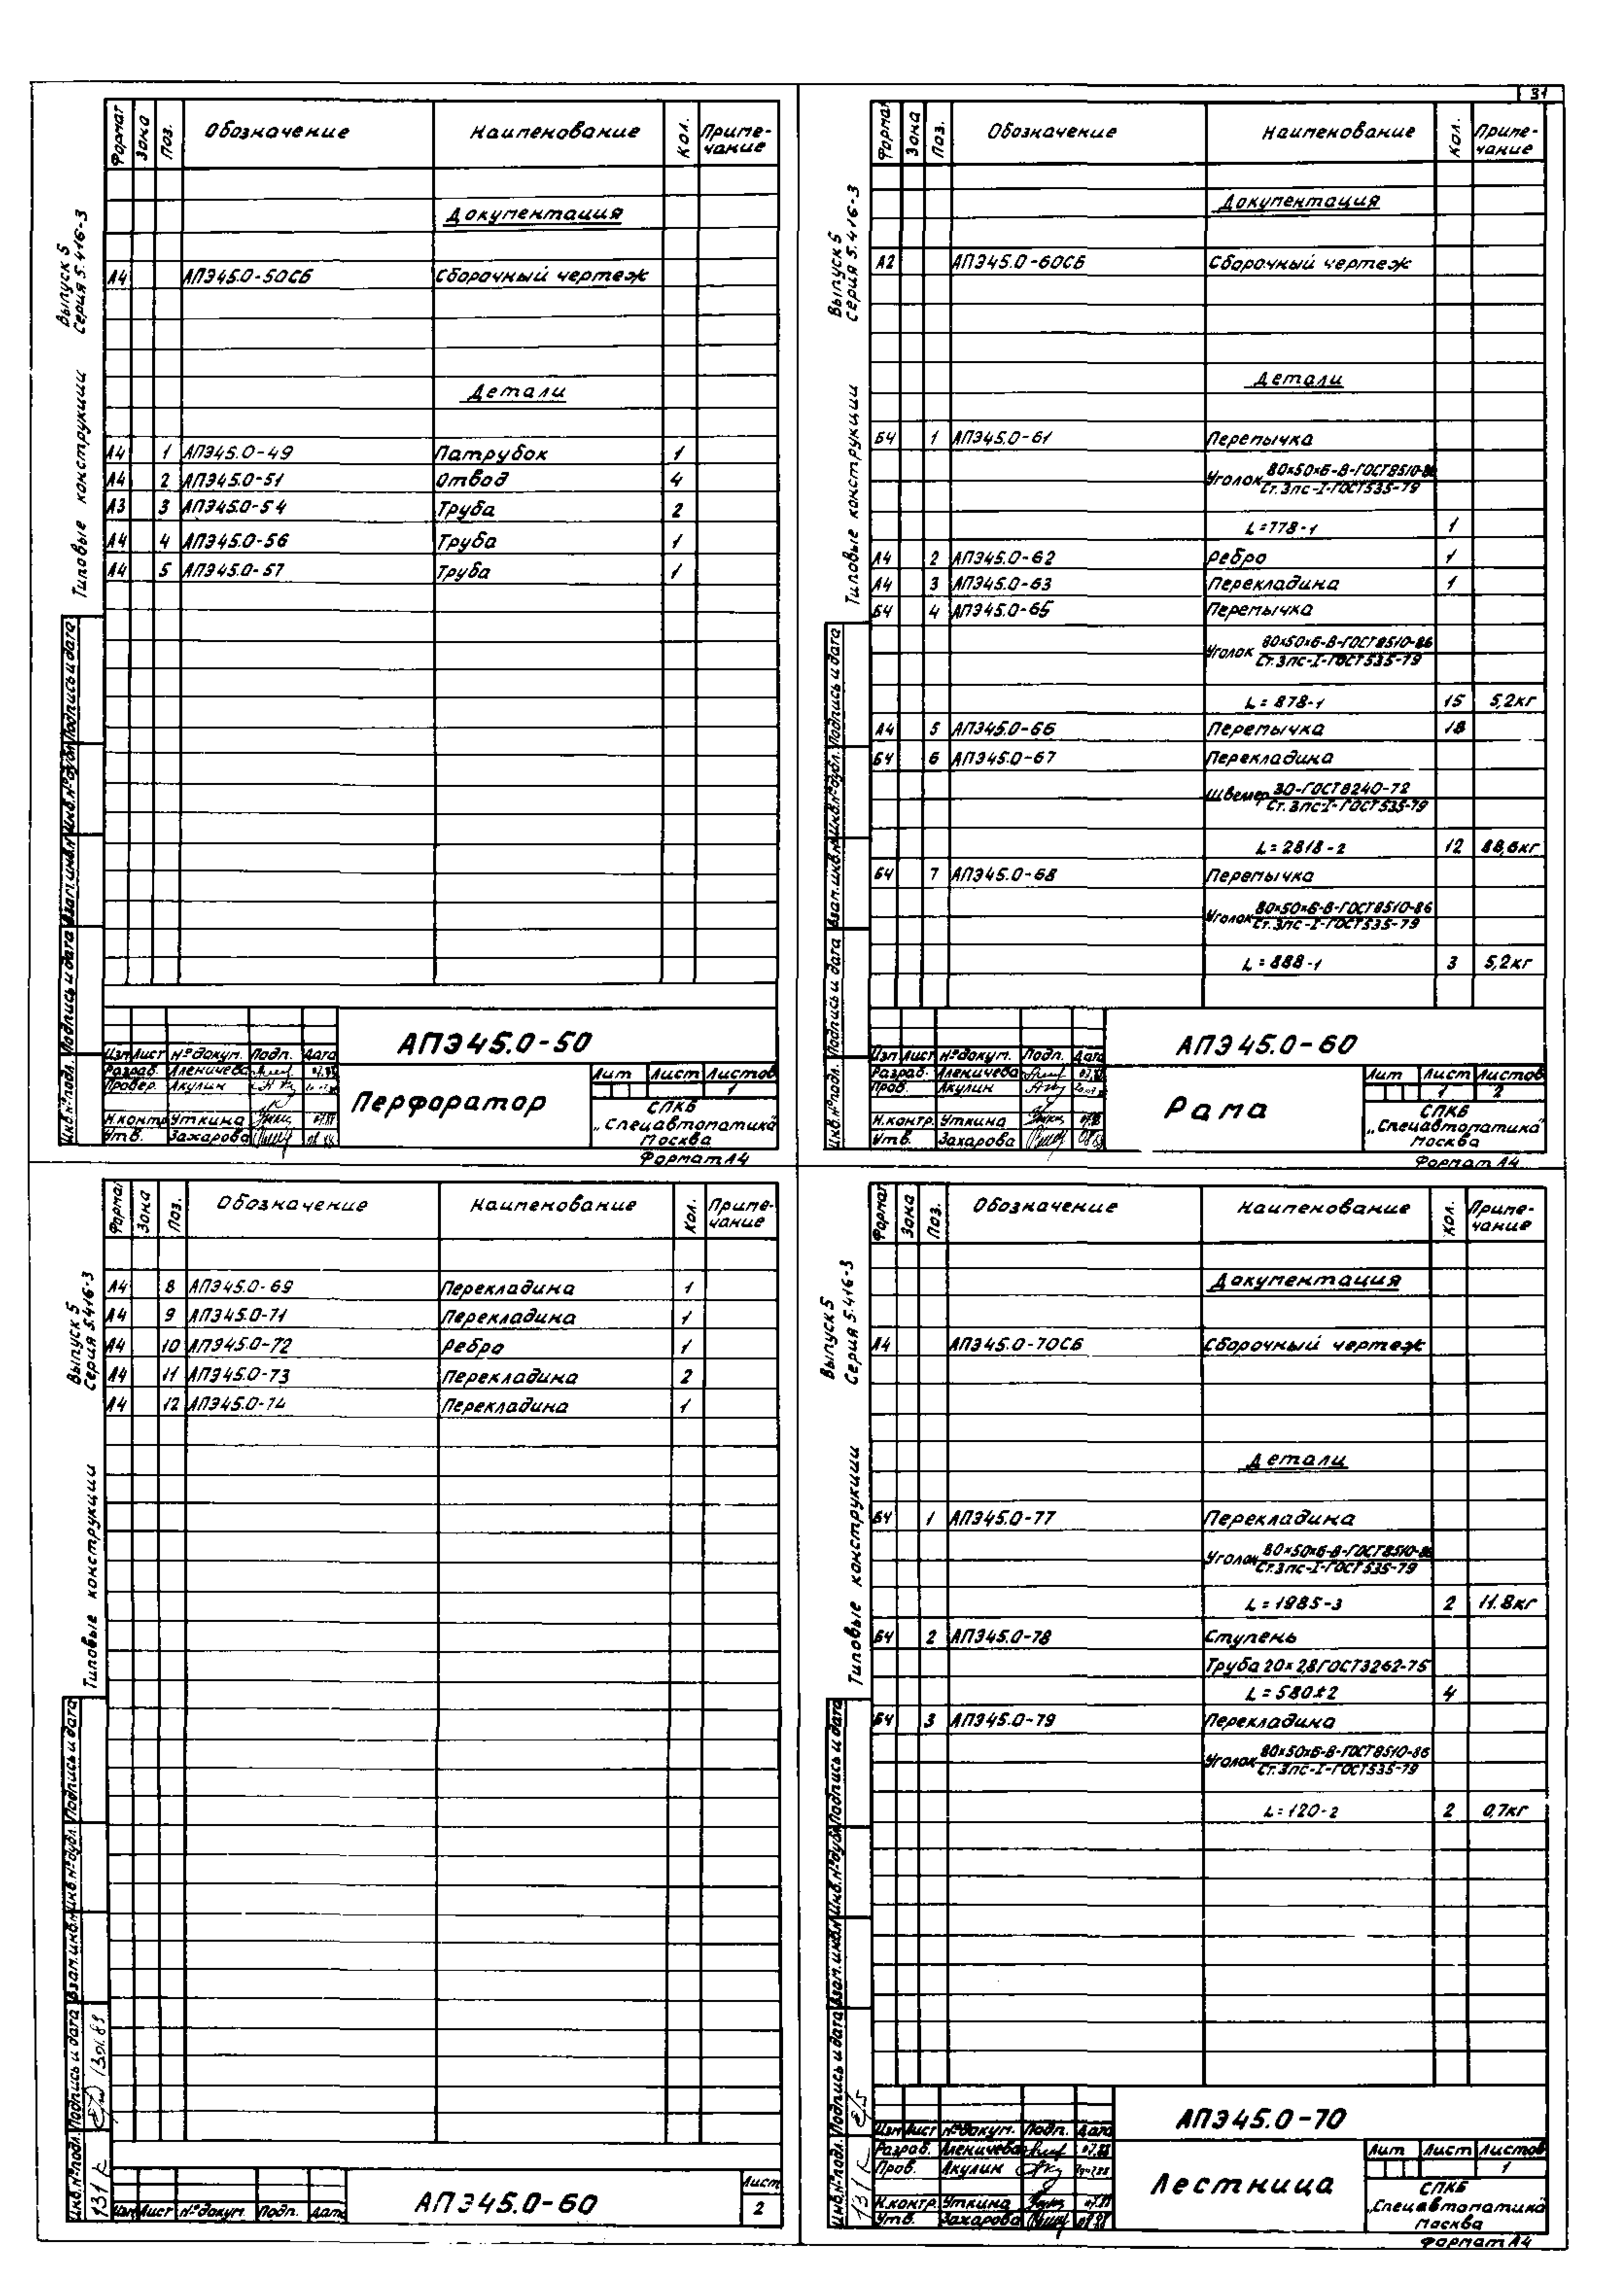 31
Формат Зона Поз. Обозначение Наименование Кол. Приме-
чание
Документация
А4 АПЭ45.0-50СБ Сборочный чертеж
Детали
А4 1 АПЭ45.0-49 Патрубок 1
А4 2 АПЭ45.0-51 Отвод 4
А3 3 АПЭ45.0-54 Труба 2
А4 4 АПЭ45.0-56 Труба 1
А4 5 АПЭ45.0-57 Труба 1
Выпуск 5
Серия 5.416-3
Типовые конструкции
Подпись и дата
Инв.№дубл.
Взам.инв.№
Подпись и дата
Инв.№подл.
АПЭ45.0-50
Изм Лист №докум. Подп. Дата
Разраб. Аленичева 07.88
Провер. Акулин
Н.контр Уткина 07.88
Утв. Захарова 08.88
Перфоратор
Лит Лист Листов
1
СПКБ
„Спецавтоматика"
Москва
Формат А4
Формат Зона Поз. Обозначение Наименование Кол. Приме-
чание
Документация
А2 АПЭ45.0-60СБ Сборочный чертеж
Детали
БЧ 1 АПЭ45.0-61 Перемычка
Уголок 80×50×6-В-ГОСТ8510-86
Ст.3пс-I-ГОСТ535-79
L=778-1 1
А4 2 АПЭ45.0-62 Ребро 1
А4 3 АПЭ45.0-63 Перекладина 1
БЧ 4 АПЭ45.0-65 Перемычка
Уголок 80×50×6-В-ГОСТ8510-86
Ст.3пс-I-ГОСТ535-79
L=878-1 15 5,2кг
А4 5 АПЭ45.0-66 Перемычка 18
БЧ 6 АПЭ45.0-67 Перекладина
Швеллер 30-ГОСТ8240-72
Ст.3пс-I-ГОСТ535-79
L=2818-2 12 88,6кг
БЧ 7 АПЭ45.0-68 Перемычка
Уголок 80×50×6-В-ГОСТ8510-86
Ст.3пс-I-ГОСТ535-79
L=888-1 3 5,2кг
Выпуск 5
Серия 5.416-3
Типовые конструкции
Подпись и дата
Инв.№дубл.
Взам.инв.№
Подпись и дата
Инв.№подл.
АПЭ45.0-60
Изм Лист №докум. Подп. Дата
Разраб. Аленичева 07.88
Пров. Акулин
Н.контр. Уткина 07.88
Утв. Захарова 08.88
Рама
Лит Лист Листов
1 2
СПКБ
„Спецавтоматика"
Москва
Формат А4
Формат Зона Поз. Обозначение Наименование Кол. Приме-
чание
А4 8 АПЭ45.0-69 Перекладина 1
А4 9 АПЭ45.0-71 Перекладина 1
А4 10 АПЭ45.0-72 Ребро 1
А4 11 АПЭ45.0-73 Перекладина 2
А4 12 АПЭ45.0-74 Перекладина 1
Выпуск 5
Серия 5.416-3
Типовые конструкции
Подпись и дата
Инв.№дубл.
Взам.инв.№
Подпись и дата
Инв.№подл.
Изм Лист №докум. Подп. Дата
АПЭ45.0-60
Лист
2
Формат Зона Поз. Обозначение Наименование Кол. Приме-
чание
Документация
А4 АПЭ45.0-70СБ Сборочный чертеж
Детали
БЧ 1 АПЭ45.0-77 Перекладина
Уголок 80×50×6-В-ГОСТ8510-86
Ст.3пс-I-ГОСТ535-79
L=1985-3 2 11.8кг
БЧ 2 АПЭ45.0-78 Ступень
Труба 20×2,8 ГОСТ3262-75
L=580±2 4
БЧ 3 АПЭ45.0-79 Перекладина
Уголок 80×50×6-В-ГОСТ8510-86
Ст.3пс-I-ГОСТ535-79
L=120-2 2 0,7кг
Выпуск 5
Серия 5.416-3
Типовые конструкции
Подпись и дата
Инв.№дубл.
Взам.инв.№
Подпись и дата
Инв.№подл.
АПЭ45.0-70
Изм Лист №докум. Подп. Дата
Разраб. Аленичева 07.88
Пров. Акулин
Н.контр. Уткина 07.88
Утв. Захарова 08.88
Лестница
Лит Лист Листов
1
СПКБ
„Спецавтоматика"
Москва
Формат А4